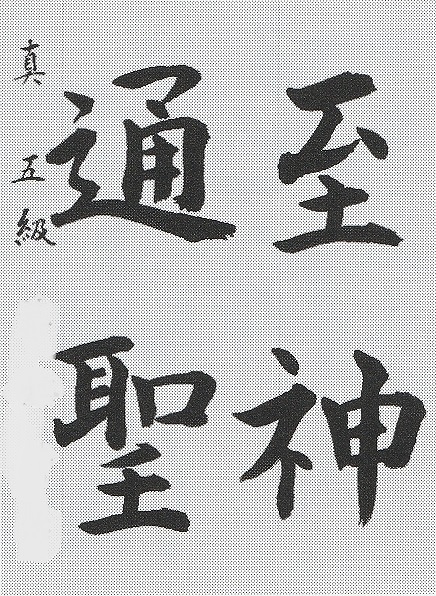 至神
通聖
真五級